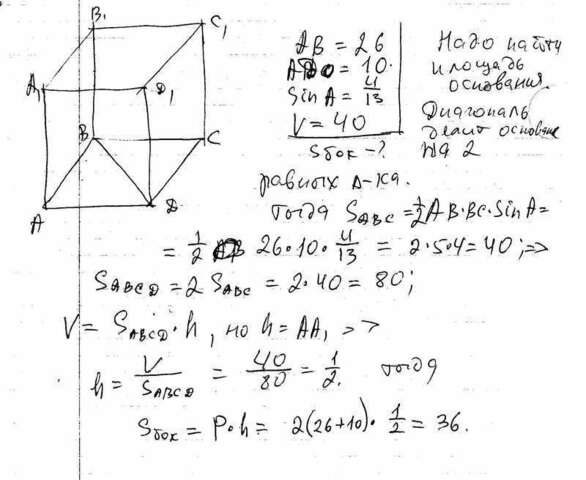 B₁
C₁
A₁
D₁
B
C
A
D
AB = 26
AD = 10.
sin A = 4/13
V = 40
Sбок - ?
Надо найти
площадь
основания.
Диагональ
делит основание
на 2
равных Δ-ка.
тогда S ABC = 1/2 AB·BC·sin A =
= 1/2 26·10·4/13 = 2·5·4 = 40; =>
S ABCD = 2 S ABC = 2·40 = 80;
V = S ABCD · h, но h = AA₁ =>
h = V/S ABCD = 40/80 = 1/2. тогда
Sбок = P·h = 2(26+10)·1/2 = 36.